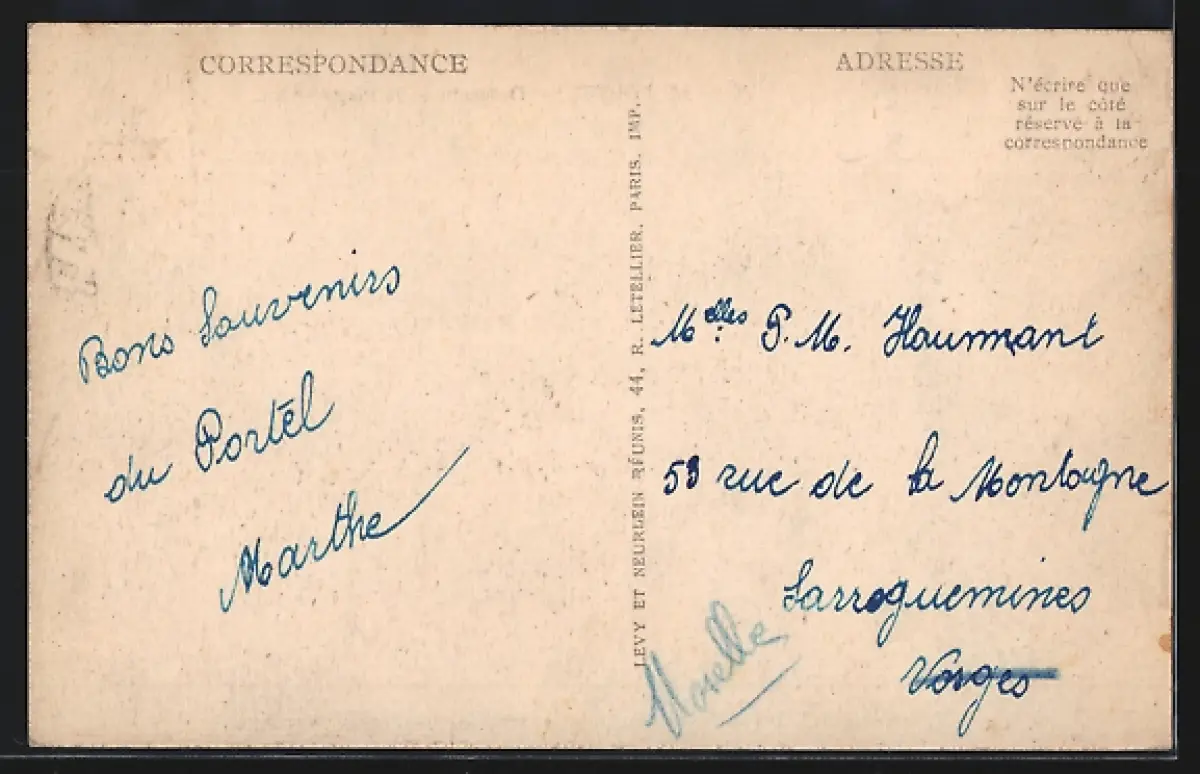 CORRESPONDANCE
Bons Souvenirs
du Portel
Marthe
LEVY ET NEURLEIN RÉUNIS, 44, R. LETELLIER, PARIS. IMP.
ADRESSE
N'écrire que
sur le côté
réservé à la
correspondance
Melles P. M. Haumant
53 rue de la Montagne
Sarreguemines
Vosges
Moselle